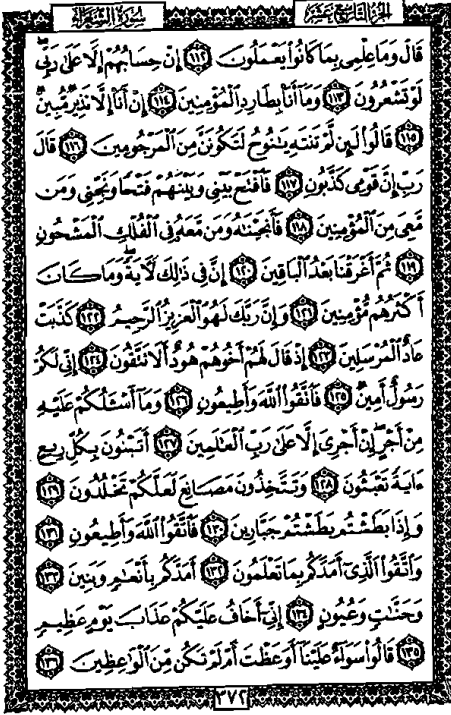 سُورَةُ الشُّعَرَاءِ الجُزءُ التَّاسِعَ عَشَرَ
قَالَ وَمَا عِلْمِى بِمَا كَانُوا۟ يَعْمَلُونَ ١١٢ إِنْ حِسَابُهُمْ إِلَّا عَلَىٰ رَبِّى
لَوْ تَشْعُرُونَ ١١٣ وَمَآ أَنَا۠ بِطَارِدِ ٱلْمُؤْمِنِينَ ١١٤ إِنْ أَنَا۠ إِلَّا نَذِيرٌ مُّبِينٌ
١١٥ قَالُوا۟ لَئِن لَّمْ تَنتَهِ يَٰنُوحُ لَتَكُونَنَّ مِنَ ٱلْمَرْجُومِينَ ١١٦ قَالَ
رَبِّ إِنَّ قَوْمِى كَذَّبُونِ ١١٧ فَٱفْتَحْ بَيْنِى وَبَيْنَهُمْ فَتْحًا وَنَجِّنِى وَمَن
مَّعِىَ مِنَ ٱلْمُؤْمِنِينَ ١١٨ فَأَنجَيْنَٰهُ وَمَن مَّعَهُۥ فِى ٱلْفُلْكِ ٱلْمَشْحُونِ
١١٩ ثُمَّ أَغْرَقْنَا بَعْدُ ٱلْبَاقِينَ ١٢٠ إِنَّ فِى ذَٰلِكَ لَءَايَةً ۖ وَمَا كَانَ
أَكْثَرُهُم مُّؤْمِنِينَ ١٢١ وَإِنَّ رَبَّكَ لَهُوَ ٱلْعَزِيزُ ٱلرَّحِيمُ ١٢٢ كَذَّبَتْ
عَادٌ ٱلْمُرْسَلِينَ ١٢٣ إِذْ قَالَ لَهُمْ أَخُوهُمْ هُودٌ أَلَا تَتَّقُونَ ١٢٤ إِنِّى لَكُمْ
رَسُولٌ أَمِينٌ ١٢٥ فَٱتَّقُوا۟ ٱللَّهَ وَأَطِيعُونِ ١٢٦ وَمَآ أَسْـَٔلُكُمْ عَلَيْهِ
مِنْ أَجْرٍ ۖ إِنْ أَجْرِىَ إِلَّا عَلَىٰ رَبِّ ٱلْعَٰلَمِينَ ١٢٧ أَتَبْنُونَ بِكُلِّ رِيعٍ
ءَايَةً تَعْبَثُونَ ١٢٨ وَتَتَّخِذُونَ مَصَانِعَ لَعَلَّكُمْ تَخْلُدُونَ ١٢٩
وَإِذَا بَطَشْتُم بَطَشْتُمْ جَبَّارِينَ ١٣٠ فَٱتَّقُوا۟ ٱللَّهَ وَأَطِيعُونِ ١٣١
وَٱتَّقُوا۟ ٱلَّذِىٓ أَمَدَّكُم بِمَا تَعْلَمُونَ ١٣٢ أَمَدَّكُم بِأَنْعَٰمٍ وَبَنِينَ ١٣٣
وَجَنَّٰتٍ وَعُيُونٍ ١٣٤ إِنِّىٓ أَخَافُ عَلَيْكُمْ عَذَابَ يَوْمٍ عَظِيمٍ
١٣٥ قَالُوا۟ سَوَآءٌ عَلَيْنَآ أَوَعَظْتَ أَمْ لَمْ تَكُن مِّنَ ٱلْوَٰعِظِينَ ١٣٦
٣٧٢